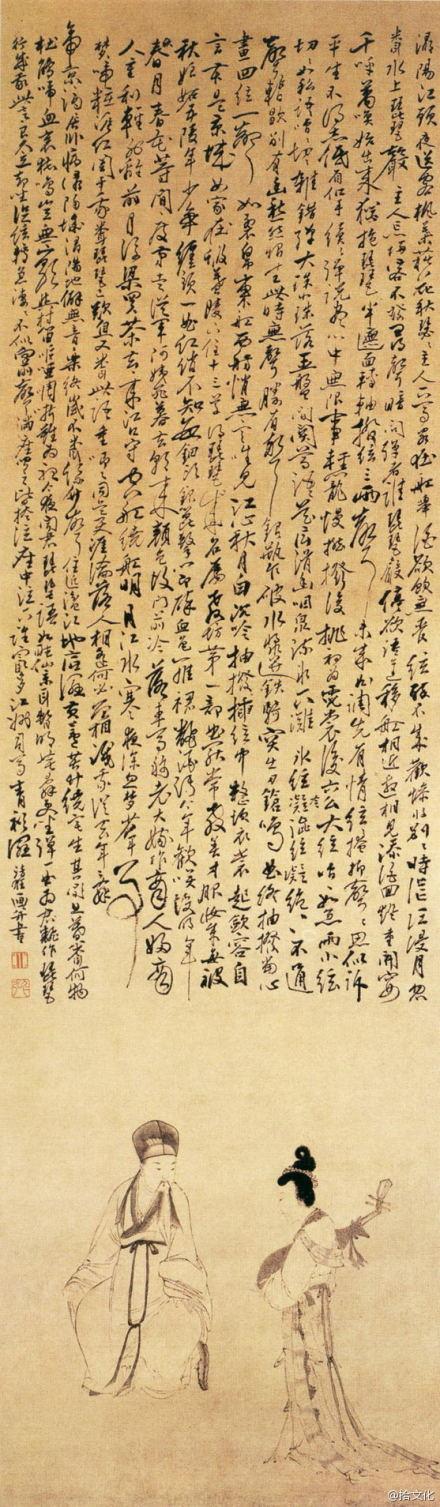 潯陽江頭夜送客楓葉荻花秋瑟瑟主人下馬客在船舉酒欲飲無管絃醉不成歡慘將別別時茫茫江浸月忽
聞水上琵琶聲主人忘歸客不發尋聲暗問彈者誰琵琶聲停欲語遲移船相近邀相見添酒回燈重開宴
千呼萬喚始出來猶抱琵琶半遮面轉軸撥絃三兩聲未成曲調先有情絃絃掩抑聲聲思似訴
平生不得志低眉信手續續彈說盡心中無限事輕攏慢撚撥復挑初為霓裳後六幺大絃嘈嘈如急雨小絃
切切如私語嘈嘈切切雜錯彈大珠小珠落玉盤間關鶯語花底滑幽咽泉流冰下灘冰絃冷澀絃凝絕凝絕不通
聲暫歇別有幽愁暗恨生此時無聲勝有聲銀瓶乍破水漿迸鐵騎突出刀鎗鳴曲終抽撥當心
畫四絃一聲如裂帛東船西舫悄無言唯見江心秋月白沉吟抽撥插絃中整頓衣裳起斂容自
言本是京城女家在蝦蟇陵下住十三學得琵琶成名屬教坊第一部曲罷常教善才服妝成每被
秋娘妬五陵年少爭纏頭一曲紅綃不知數鈿頭銀篦擊節碎血色羅裙翻酒汙今年歡笑復明年秋
月春花等閒度弟走從軍阿姨死暮去朝來顏色故門前冷落車馬稀老大嫁作商人婦商
人重利輕別離前月浮梁買茶去去來江口守空船繞船明月江水寒夜深忽夢少年事
夢啼粧淚紅闌干我聞琵琶已歎息又聞此語重唧唧同是天涯淪落人相逢何必曾相識我從去年辭
帝京謫居臥病潯陽城潯陽地僻無音樂終歲不聞絲竹聲住近湓江地低濕黃蘆苦竹繞宅生其間旦暮聞何物
杜鵑啼血哀猿鳴豈無山歌與村笛嘔啞嘲哳難為聽今夜聞君琵琶語如聽仙樂耳暫明莫辭更坐彈一曲為君翻作琵琶
行感我此言良久立却坐促絃絃轉急淒淒不似向前聲滿座聞之皆掩泣座中泣下誰最多江州司馬青衫濕 清狂畫并書
@拾文化